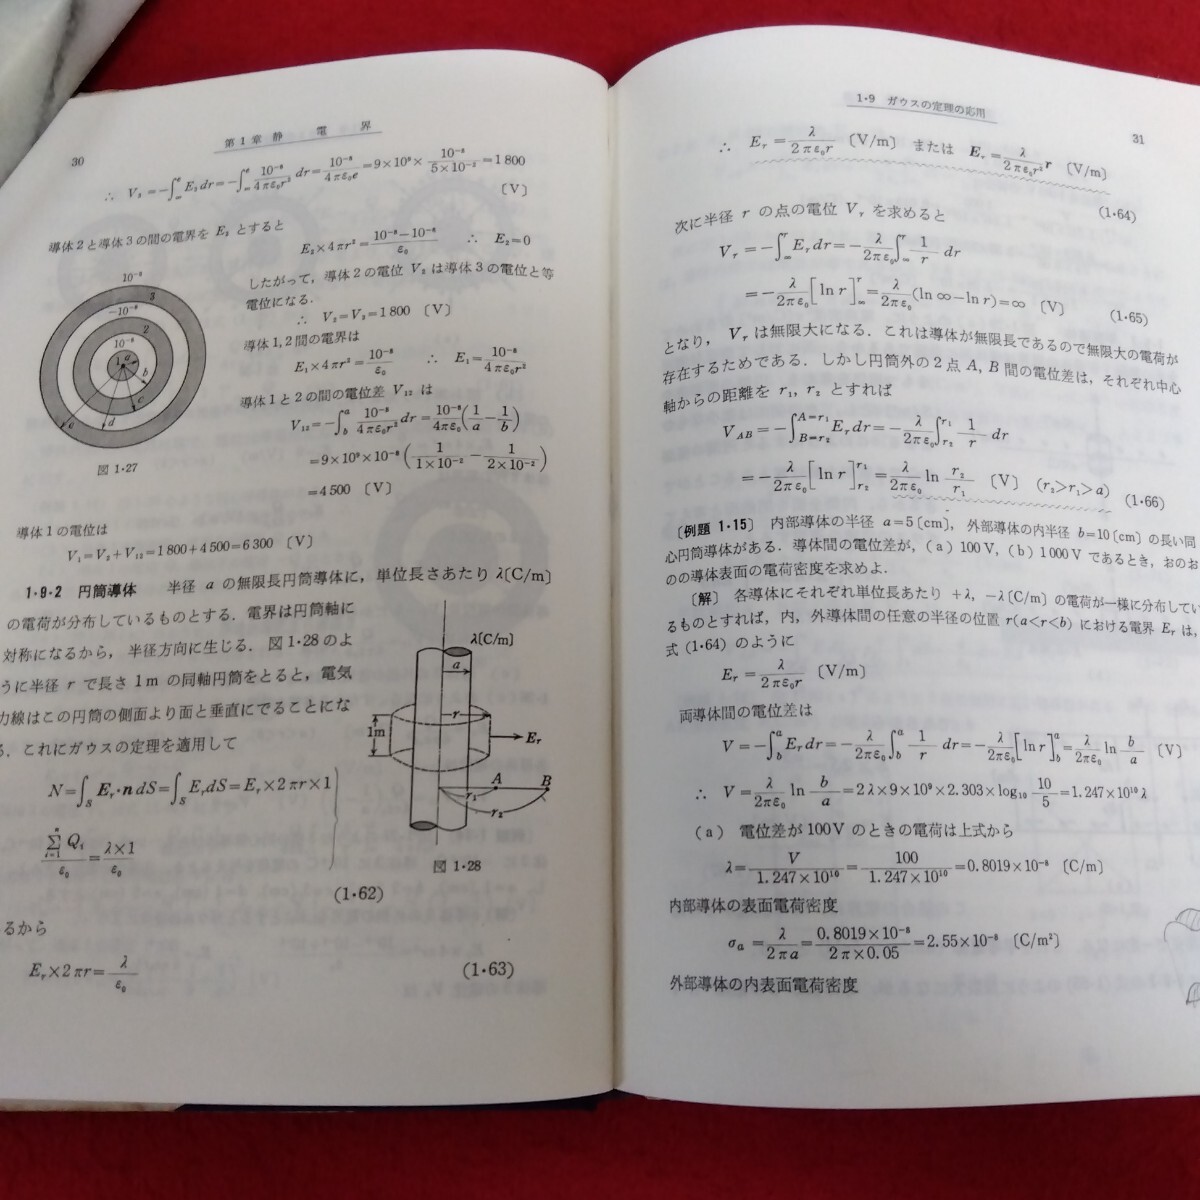 30
第1章 静 電 界
∴ V₃=−∫_∞^e E₃dr=−∫_∞^e 10⁻⁸/4πε₀r² dr=10⁻⁸/4πε₀e=9×10⁹×10⁻⁸/5×10⁻²=1800
〔V〕
導体2と導体3の間の電界を E₂ とすると
E₂×4πr²=10⁻⁸−10⁻⁸/ε₀ ∴ E₂=0
したがって，導体2の電位 V₂ は導体3の電位と等
電位になる．
∴ V₂=V₃=1800 〔V〕
導体1,2間の電界は
E₁×4πr²=10⁻⁸/ε₀ ∴ E₁=10⁻⁸/4πε₀r²
導体1と2の間の電位差 V₁₂ は
V₁₂=−∫_b^a 10⁻⁸/4πε₀r² dr=10⁻⁸/4πε₀(1/a−1/b)
=9×10⁹×10⁻⁸(1/1×10⁻²−1/2×10⁻²)
=4500 〔V〕
10⁻⁸
3
−10⁻⁸
2
10⁻⁸
1
a
b
c
d
e
図 1・27
導体1の電位は
V₁=V₂+V₁₂=1800+4500=6300 〔V〕
1・9・2 円筒導体 半径 a の無限長円筒導体に，単位長さあたり λ〔C/m〕
の電荷が分布しているものとする．電界は円筒軸に
対称になるから，半径方向に生じる．図 1・28 のよ
うに半径 r で長さ 1m の同軸円筒をとると，電気
力線はこの円筒の側面より面と垂直にでることにな
る．これにガウスの定理を適用して
N=∫_S E_r・n dS=∫_S E_r dS=E_r×2πr×1
∑_{i=1}^n Q_i/ε₀=λ×1/ε₀
(1・62)
λ〔C/m〕
a
r
1m
E_r
A
B
r₁
r₂
図 1・28
るから
E_r×2πr=λ/ε₀ (1・63)
1・9 ガウスの定理の応用
31
∴ E_r=λ/2πε₀r 〔V/m〕 または E_r=λ/2πε₀r² r 〔V/m〕
(1・64)
次に半径 r の点の電位 V_r を求めると
V_r=−∫_∞^r E_r dr=−λ/2πε₀∫_∞^r 1/r dr
=−λ/2πε₀[ln r]_∞^r=λ/2πε₀(ln ∞−ln r)=∞ 〔V〕 (1・65)
となり，V_r は無限大になる．これは導体が無限長であるので無限大の電荷が
存在するためである．しかし円筒外の2点 A, B 間の電位差は，それぞれ中心
軸からの距離を r₁, r₂ とすれば
V_AB=−∫_{B=r₂}^{A=r₁} E_r dr=−λ/2πε₀∫_{r₂}^{r₁} 1/r dr
=−λ/2πε₀[ln r]_{r₂}^{r₁}=λ/2πε₀ ln r₂/r₁ 〔V〕 (r₂>r₁>a) (1・66)
〔例題 1・15〕 内部導体の半径 a=5〔cm〕，外部導体の内半径 b=10〔cm〕の長い同
心円筒導体がある．導体間の電位差が，(a) 100V, (b) 1000V であるとき，おのお
のの導体表面の電荷密度を求めよ．
〔解〕 各導体にそれぞれ単位長あたり +λ, −λ〔C/m〕の電荷が一様に分布してい
るものとすれば，内，外導体間の任意の半径の位置 r(a<r<b) における電界 E_r は，
式 (1・64) のように
E_r=λ/2πε₀r 〔V/m〕
両導体間の電位差は
V=−∫_b^a E_r dr=−λ/2πε₀∫_b^a 1/r dr=−λ/2πε₀[ln r]_b^a=λ/2πε₀ ln b/a 〔V〕
∴ V=λ/2πε₀ ln b/a=2λ×9×10⁹×2.303×log₁₀ 10/5=1.247×10¹⁰λ
(a) 電位差が100Vのときの電荷は上式から
λ=V/1.247×10¹⁰=100/1.247×10¹⁰=0.8019×10⁻⁸ 〔C/m〕
内部導体の表面電荷密度
σ_a=λ/2πa=0.8019×10⁻⁸/2π×0.05=2.55×10⁻⁸ 〔C/m²〕
外部導体の内表面電荷密度